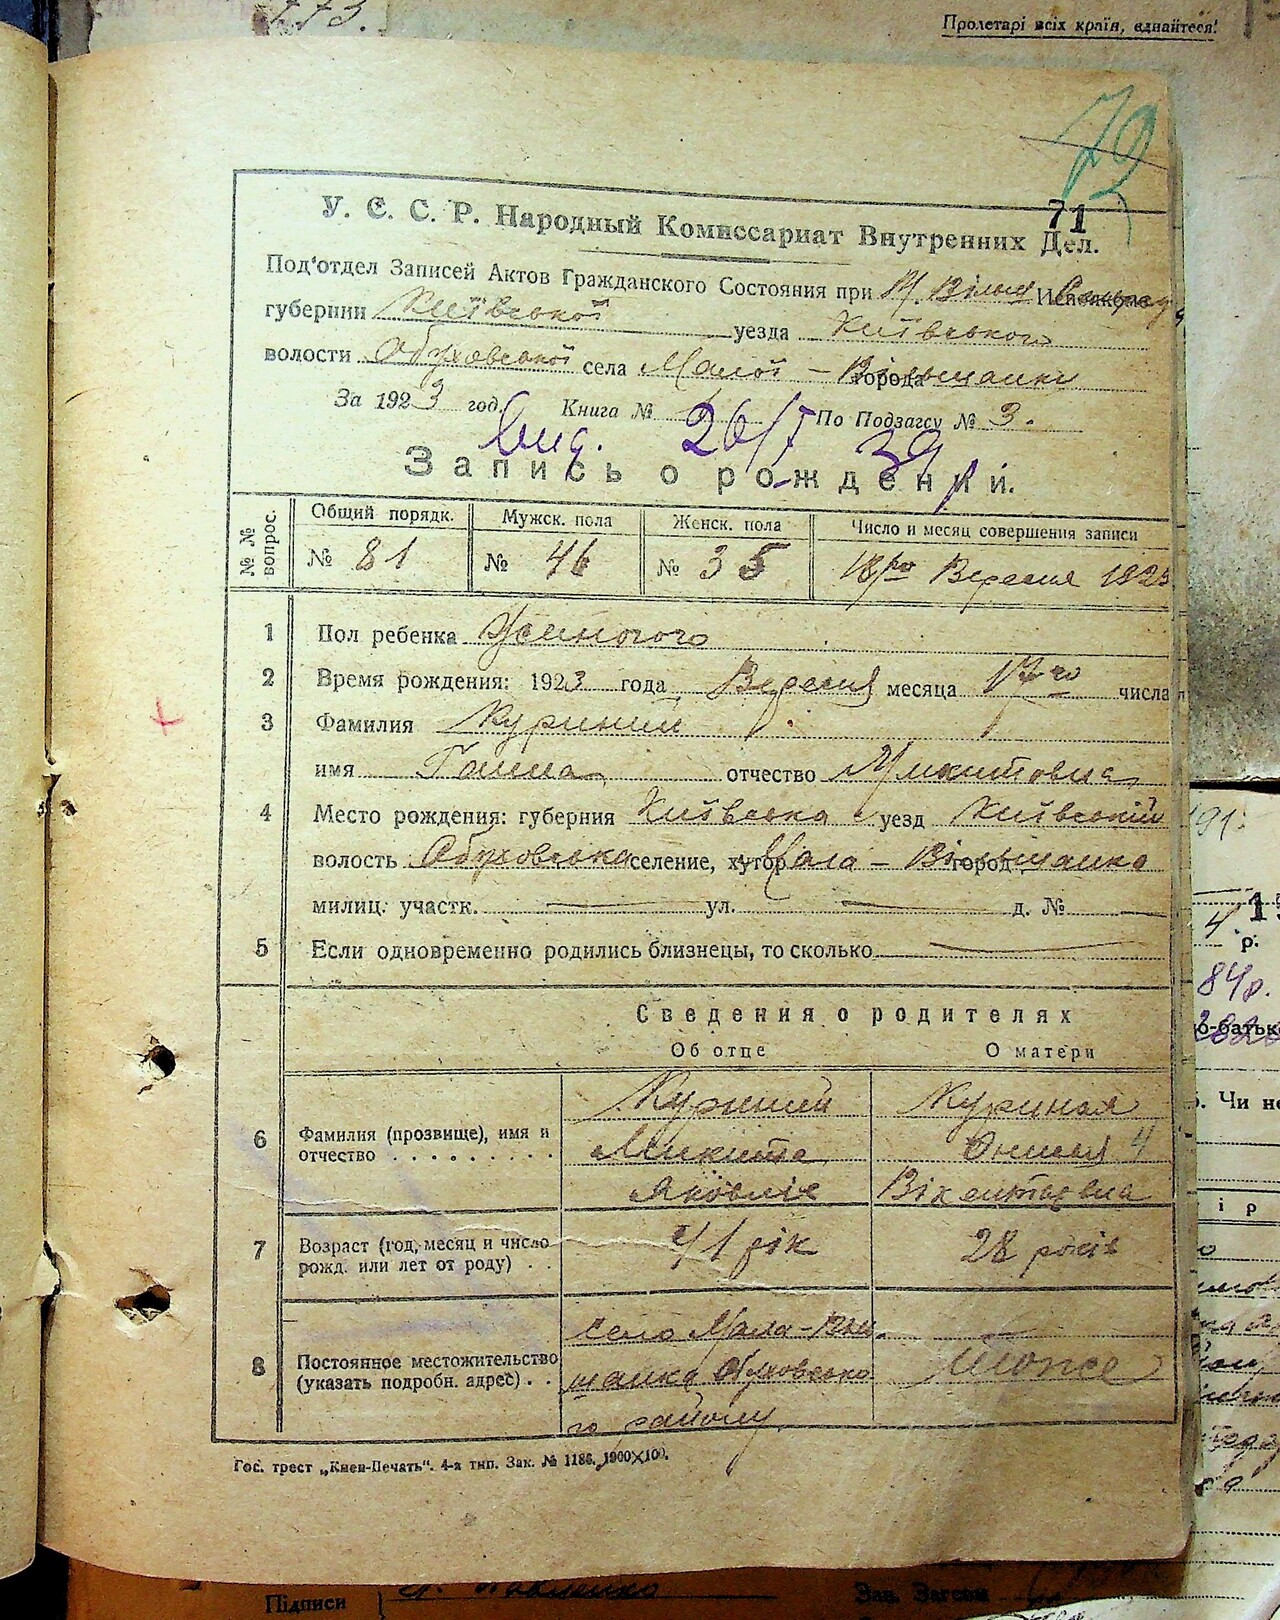 173.
Пролетарі всіх країн, єднайтеся!
72
71
У. С. С. Р. Народный Комиссариат Внутренних Дел.
Под'отдел Записей Актов Гражданского Состояния при М. Вільш
губернии Київської уезда Київського
волости Обуховської села Малої - Вільшанки города
За 1923 год. Книга № По Подзагсу № 3.
Вид. 26/I 39 р.
Запись о рождении.
№№ вопрос.
Общий порядк. Мужск. пола Женск. пола Число и месяц совершения записи
№ 81 № 46 № 35 18го Вересня 1923
1 Пол ребенка Жіночого
2 Время рождения: 1923 года Вересня месяца 17го числа
3 Фамилия Куриний
имя Ганна отчество Микитовна
4 Место рождения: губерния Київська уезд Київський
волость Обуховська селение, хутор Мала - Вільшанка город
милиц. участк. — ул. — д. № —
5 Если одновременно родились близнецы, то сколько —
Сведения о родителях
Об отце О матери
6 Фамилия (прозвище), имя и отчество
Куриний Микита Яковліч
Куриная Вікентіевна
7 Возраст (год, месяц и число рожд. или лет от роду)
41 рік 28 років
8 Постоянное местожительство (указать подробн. адрес)
село Мала-Вільшанка Обуховського району
Тоже
Гос. трест „Киев-Печать". 4-я тип. Зак. № 1186. 1900×100.
4 р.
84р.
о-батьк
Чи не
ір
Підписи
Зав. Загсом